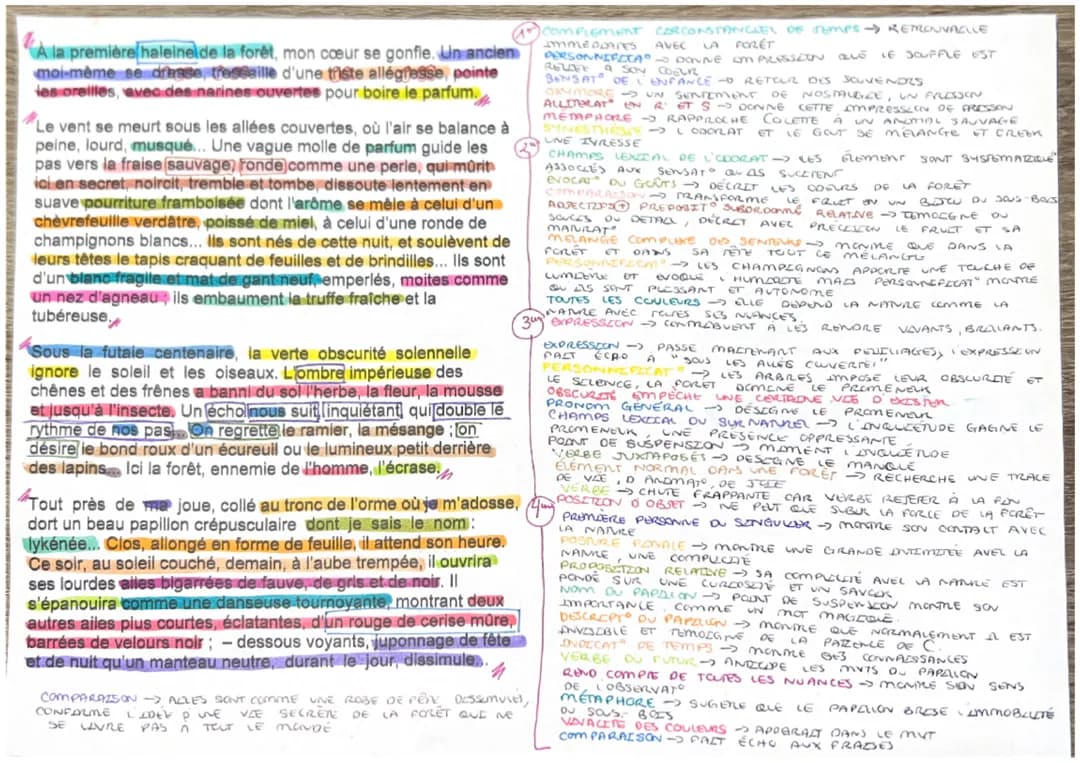 À la première haleine de la forêt, mon cœur se gonfle. Un ancien
moi-même se dresse, tressaille d'une triste allégresse, pointe
les oreilles, avec des narines ouvertes pour boire le parfum.
Le vent se meurt sous les allées couvertes, où l'air se balance à
peine, lourd, musqué... Une vague molle de parfum guide les
pas vers la fraise sauvage, ronde comme une perle, qui mûrit
ici en secret, noircit, tremble et tombe, dissoute lentement en
suave pourriture framboisée dont l'arôme se mêle à celui d'un
chèvrefeuille verdâtre, poissé de miel, à celui d'une ronde de
champignons blancs... Ils sont nés de cette nuit, et soulèvent de
leurs têtes le tapis craquant de feuilles et de brindilles... Ils sont
d'un blanc fragile et mat de gant neuf, emperlés, moites comme
un nez d'agneau ; ils embaument la truffe fraîche et la
tubéreuse.
Sous la futaie centenaire, la verte obscurité solennelle
ignore le soleil et les oiseaux. L'ombre impérieuse des
chênes et des frênes a banni du sol l'herbe, la fleur, la mousse
et jusqu'à l'insecte. Un écho nous suit, inquiétant, qui double le
rythme de nos pas... On regrette le ramier, la mésange ; on
désire le bond roux d'un écureuil ou le lumineux petit derrière
des lapins... Ici la forêt, ennemie de l'homme, l'écrase.
Tout près de ma joue, collé au tronc de l'orme où je m'adosse,
dort un beau papillon crépusculaire dont je sais le nom :
lykénée... Clos, allongé en forme de feuille, il attend son heure.
Ce soir, au soleil couché, demain, à l'aube trempée, il ouvrira
ses lourdes ailes bigarrées de fauve, de gris et de noir. Il
s'épanouira comme une danseuse tournoyante, montrant deux
autres ailes plus courtes, éclatantes, d'un rouge de cerise mûre,
barrées de velours noir ; – dessous voyants, juponnage de fête
et de nuit qu'un manteau neutre, durant le jour, dissimule...
COMPARAISON → AILES SONT COMME UNE ROBE DE FÊTE DISSIMULÉE,
CONFORME L'IDÉE D'UNE VIE SECRÈTE DE LA FORÊT QUI NE
SE LIVRE PAS À TOUT LE MONDE
1er COMPLEMENT CIRCONSTANCIEL DE TEMPS → RETROUVAILLE
IMMÉDIATES AVEC LA FORÊT
PERSONNIFICAT° → DONNE IMPRESSION QUE LE SOUFFLE EST
RELIÉE À SON COEUR
SENSAT° DE L'ENFANCE → RETOUR DES SOUVENIRS
OXYMORE → UN SENTIMENT DE NOSTALGIE, UN FRISSON
ALLITERAT° EN R ET S → DONNE CETTE IMPRESSION DE FRISSON
METAPHORE → RAPPROCHE COLETTE À UN ANIMAL SAUVAGE
SYNESTHESIE → L'ODORAT ET LE GOUT SE MÉLANGE ET CRÉER
UNE IVRESSE
2e
CHAMPS LEXICAL DE L'ODORAT → LES ÉLEMENT SONT SYSTEMATIQUE
ASSOCIÉS AUX SENSAT° QU'ILS SUSCITENT
EVOCAT° DU GOÛTS → DÉCRIT LES ODEURS DE LA FORÊT
COMPARAISON → TRANSFORME LE FRUIT EN UN BIJOU DU SOUS-BOIS
ADJECTIFS + PREPOSIT° SUBORDONNÉ RELATIVE → TEMOIGNE DU
SOUCIS DU DETAIL, DÉCRIT AVEC PRÉCISION LE FRUIT ET SA
MATURAT°
MELANGE COMPLEXE DES SENTEURS → MONTRE QUE DANS LA
FORÊT ET DANS SA TÊTE TOUT CE MÉLANGE
PERSONNIFICAT° → LES CHAMPIGNONS APPORTE UNE TOUCHE DE
LUMIÈRE ET ÉVOQUE L'HUMIDITÉ MAIS PERSONNIFICAT° MONTRE
QU'ILS SONT PUISSANT ET AUTONOME
TOUTES LES COULEURS → ELLE DÉPEND LA NATURE COMME LA
NATURE AVEC TOUTES SES NUANCES.
3em EXPRESSION → CONTRIBUENT À LES RENDRE VIVANTS, BRILLANTS.
EXPRESSION → PASSE MAINTENANT AUX FEUILLAGES, L'EXPRESSION
FAIT ÉCHO À "SOUS LES ALLÉS CUVERTE"
PERSONNIFICAT° → LES ARBRES IMPOSE LEUR OBSCURITÉ ET
LE SILENCE, LA FORÊT DOMINE LE PROMENEUR
OBSCURITÉ EMPÊCHE UNE CERTAINE VIE D'EXISTER
PRONOM GENERAL → DÉSIGNE LE PROMENEUR
CHAMPS LEXICAL DU SURNATUREL → L'INQUIETUDE GAGNE LE
PROMENEUR, UNE PRÉSENCE OPPRESSANTE
POINT DE SUSPENSION → MIMENT L'INQUIETUDE
VERBE JUXTAPOSÉS → DESIGNE LE MANQUE
ÉLÉMENT NORMAL DANS UNE FORÊT → RECHERCHE UNE TRACE
DE VIE, D'ANIMAIS, DE JOIE
VERBE → CHUTE FRAPPANTE CAR VERBE REJETER À LA FIN
POSITION D'OBJET → NE PEUT QUE SUBIR LA FORCE DE LA FORÊT
4em PREMIÈRE PERSONNE DU SINGULIER → MONTRE SON CONTACT AVEC
LA NATURE
POSTURE FINALE → MONTRE UNE GRANDE INTIMITÉE AVEC LA
NATURE, UNE COMPLICITÉ
PROPOSITION RELATIVE → SA COMPLICITÉ AVEC LA NATURE EST
FONDÉ SUR UNE CURIOSITÉ ET UN SAVOIR
NOM DU PAPILLON → POINT DE SUSPENSION MONTRE SON
IMPORTANCE, COMME UN MOT MAGIQUE.
DESCRIPT° DU PAPILLON → MONTRE QUE NORMALEMENT IL EST
INVISIBLE ET TEMOIGNE DE LA PATIENCE DE C.
INDICAT° DE TEMPS → MONTRE SES CONNAISSANCES
VERBE DU FUTUR → ANTICIPE LES MVTS DU PAPILLON
REND COMPTE DE TOUTES LES NUANCES → MONTRE SON SENS
DE L'OBSERVAT°
MÉTAPHORE → SUGÈRE QUE LE PAPILLON BRISE L'IMMOBILITÉ
DU SOUS-BOIS
VIVACITÉ DES COULEURS → APPARAIT DANS LE MVT
COMPARAISON → FAIT ÉCHO AUX FRAISES